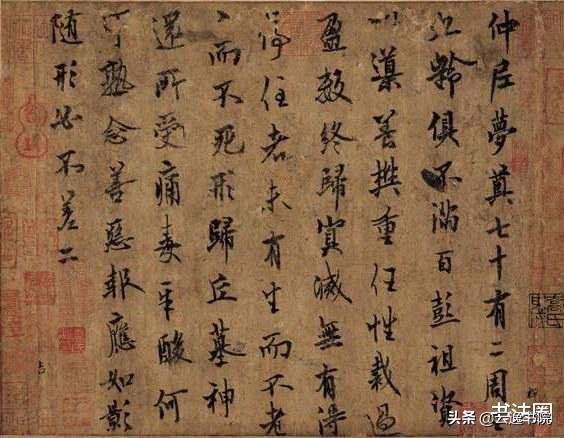 仲尼夢奠七十有二周
九齡俱不滿百彭祖資
以導養樊重任性裁過
盈數終歸冥滅無有得
停住者未有生而不老
而不死形歸丘墓神
還所受痛毒辛酸何
可熟念善惡報應如影
随形必不差二
书法网
头条 @云逸书院